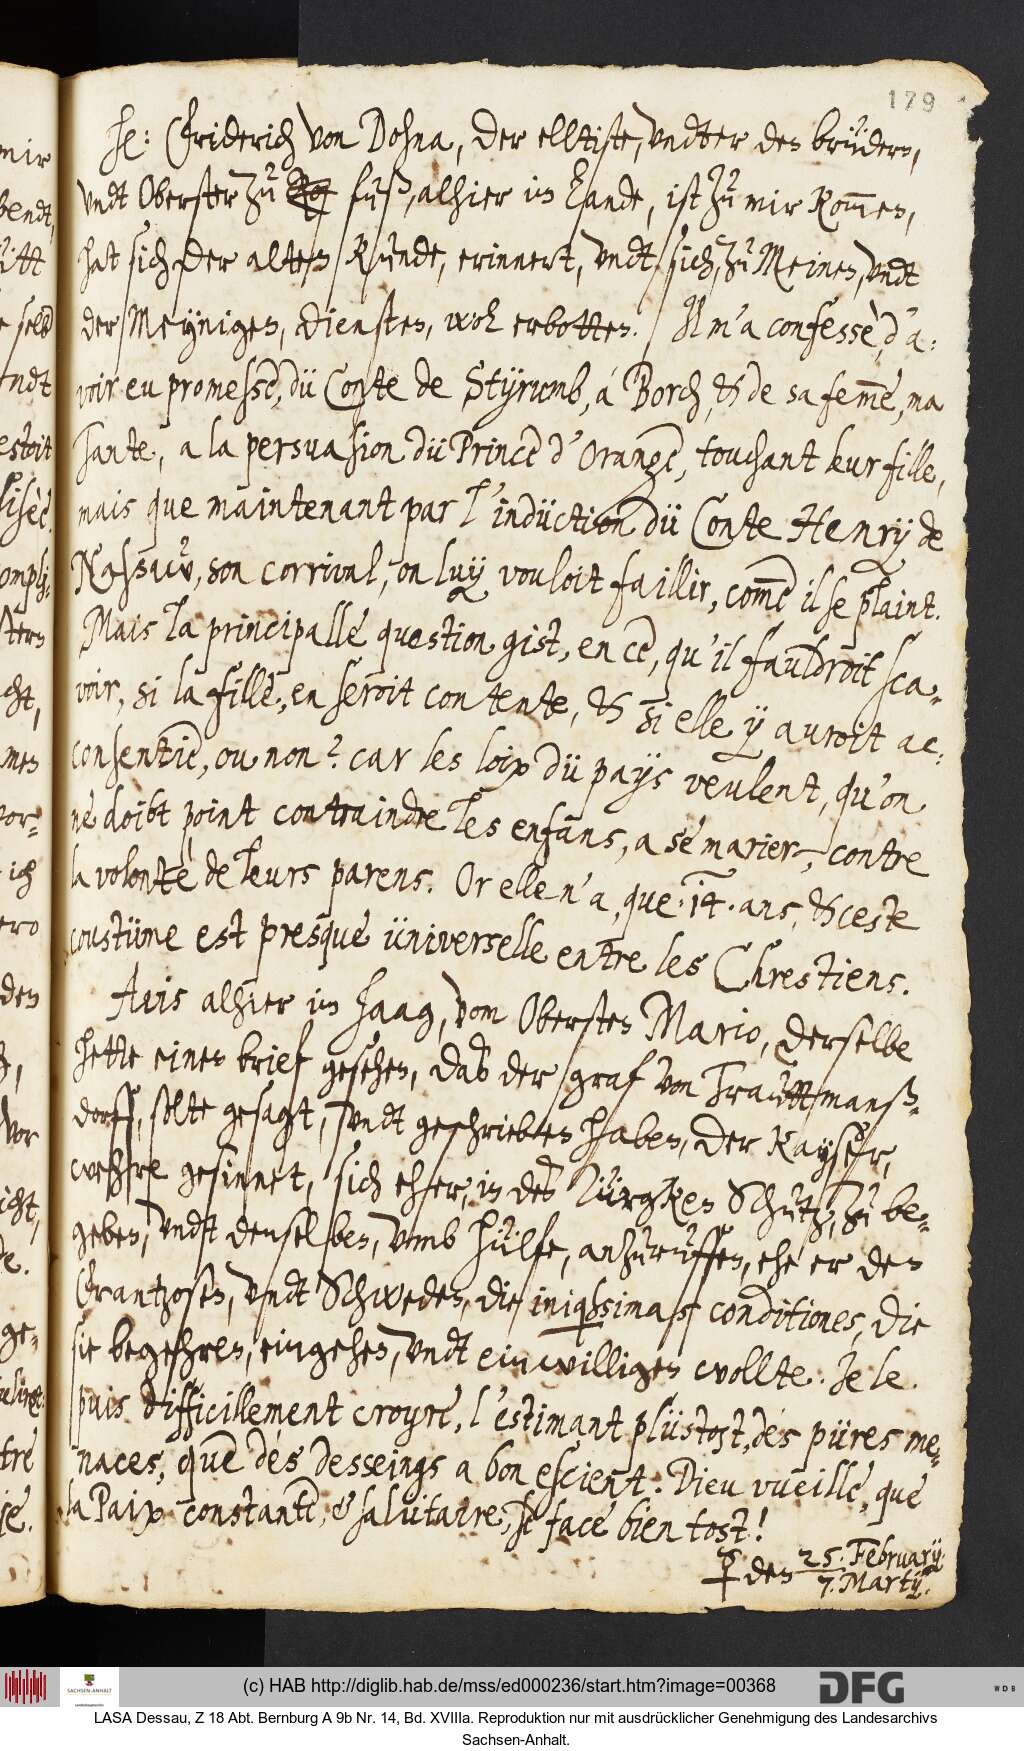 179
He: Friderich von Dohna, der elltiste, undter den brüdern,
undt Oberster zu fuß, alhier im Lande, ist zu mir kom̅en,
hat sich der alten Kunde, erinnert, undt sich, zu Meinen, undt
der Meynigen, diensten, wol erbotten. Il m'a confessè, d'a-
voir eu promesse, du Conte de Styrumb, á Borch, & de sa fem̅e, ma
Tante, a la persuasion du Prince d'Orange, touchant leur fille,
mais que maintenant par l'induction du Conte Henry de
Nassaw, son corrival, on luy vouloit faillir, com̅e il se plaint.
Mais la principalle question gist, en ce, qu'il fauldroit sca-
voir, si la fille, en seroit contente, & si elle y auroit ac-
consentie, ou non? car les loix du pays veulent, qu'on
ne doibt point contraindre les enfans, a se marier, contre
la volonté de leurs parens. Or elle n'a, que 14. ans, & ceste
coustume est presque universelle entre les Chrestiens.
Avis alhier im Haag, vom Obersten Mario, derselbe
hette einen brief gesehen, das der graf von Trauttmanß-
dorff, solte gesagt, undt geschrieben haben, der Kayser,
wehre gesinnet, sich eher, in des Türgken Schutz, zu be-
geben, undt denselben, umb hülfe, anzuruffen, ehe er den
Frantzosen, undt Schweden, die iniqussimas conditiones, die
sie begehren, eingehen, undt einwilligen wollte. Je le
puis difficillement croyre, l'estimant plustost, des pures me-
naces, que des desseings a bon escient. Dieu vueille, que
la Paix constante, & salutaire, se face bien tost!
♀ den 25. February
7. Martij.
(c) HAB http://diglib.hab.de/mss/ed000236/start.htm?image=00368
DFG
WDB
SACHSEN-ANHALT
LASA Dessau, Z 18 Abt. Bernburg A 9b Nr. 14, Bd. XVIIIa. Reproduktion nur mit ausdrücklicher Genehmigung des Landesarchivs
Sachsen-Anhalt.